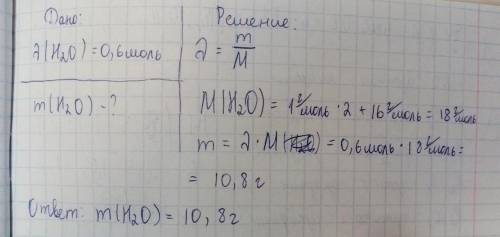 Дано:
ν(H₂O) = 0,6 моль
m(H₂O) - ?
Решение:
ν = m/M
M(H₂O) = 1 г/моль · 2 + 16 г/моль = 18 г/моль
m = ν · M = 0,6 моль · 18 г/моль =
= 10,8 г
Ответ: m(H₂O) = 10,8 г